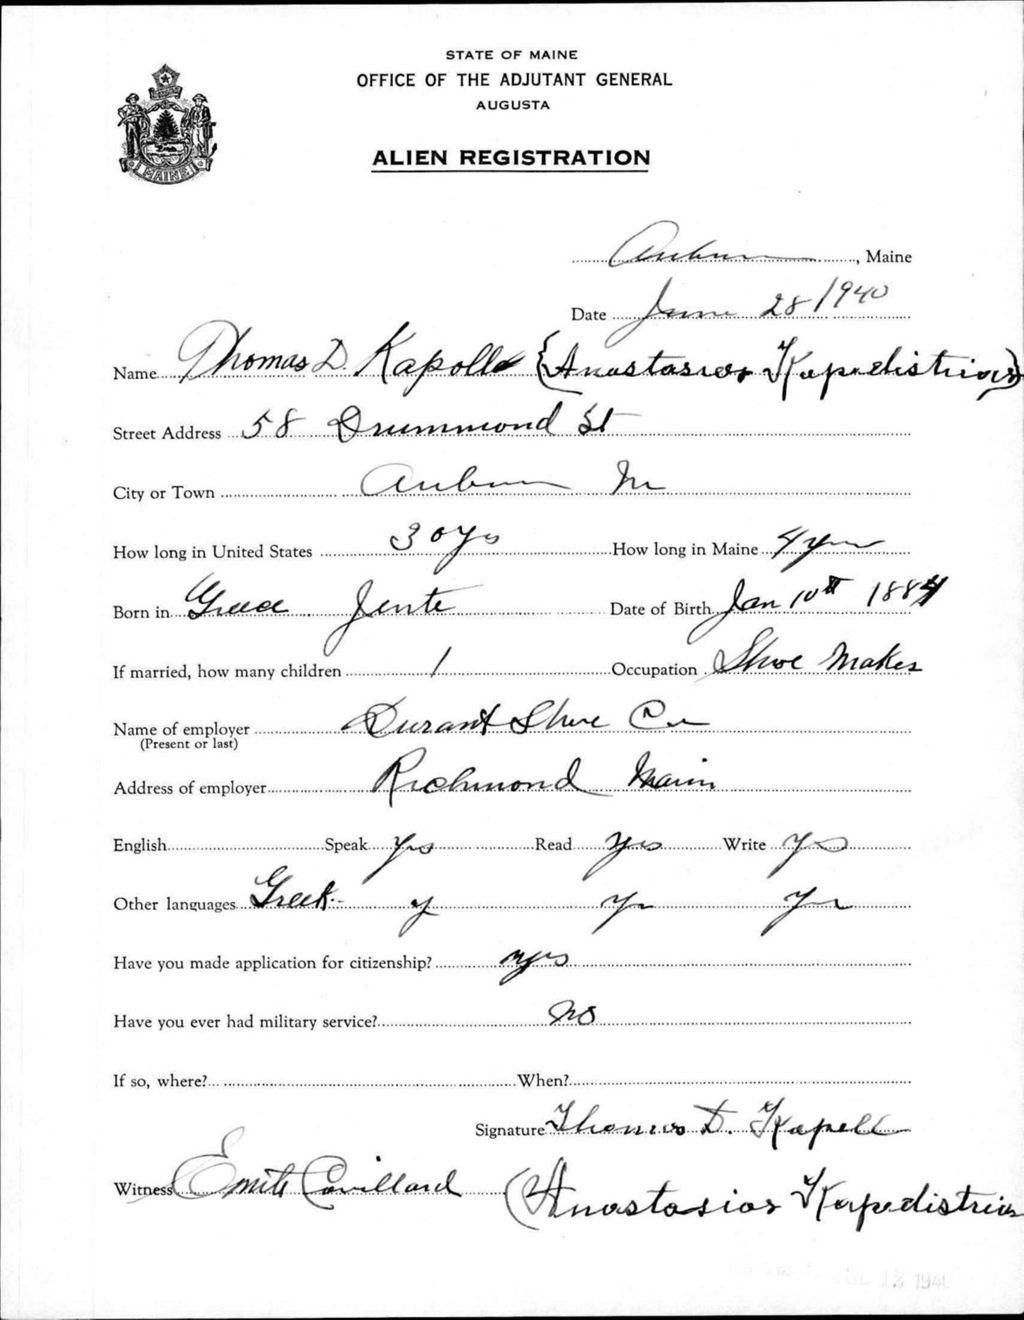 STATE OF MAINE
OFFICE OF THE ADJUTANT GENERAL
AUGUSTA
MAINE
ALIEN REGISTRATION
Auburn, Maine
Date June 28 1940
Name Thomas D. Kapolla (Anastasios Kapedistrios)
Street Address 58 Drummond St
City or Town Auburn Me
How long in United States 30 yrs How long in Maine 4 yrs
Born in Greece Date of Birth Jan 10th 1884
If married, how many children 1 Occupation Shoe Maker
Name of employer Durant Shoe Co
(Present or last)
Address of employer Richmond Maine
English Speak Yes Read Yes Write Yes
Other languages Greek - y Yes Yes
Have you made application for citizenship? yes
Have you ever had military service? no
If so, where? When?
Signature Thomas D. Kapell
Witness Emile (Anastasios Kapedistrios
1940